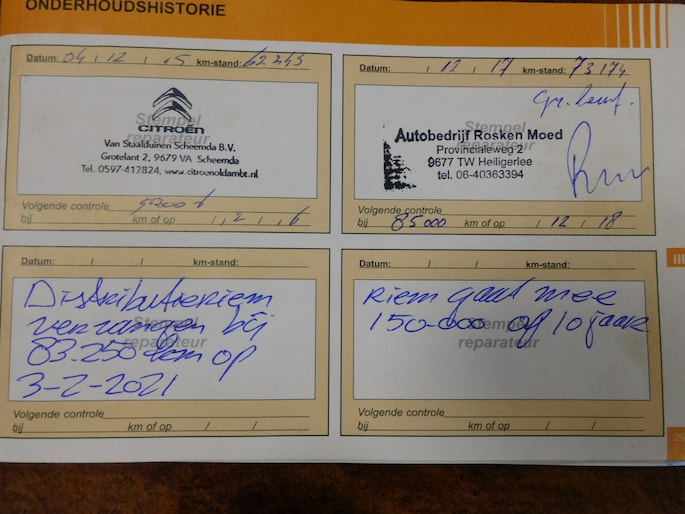 ONDERHOUDSHISTORIE
Datum: 04 / 12 / 15 km-stand: 62245
Stempel
reparateur
CITROËN
Van Staalduinen Scheemda B.V.
Grotelant 2, 9679 VA Scheemda
Tel. 0597-412824, www.citroenoldambt.nl
Volgende controle
bij km of op / 12 / 16
Datum: / 12 / 17 km-stand: 73174
Gr. beurt.
Autobedrijf Rosken Moed
Provincialeweg 2
9677 TW Heiligerlee
tel. 06-40363394
Volgende controle
bij 85000 km of op / 12 / 18
Datum: / / km-stand:
Distributieriem
vervangen bij
Stempel
83.250 km op
reparateur
3-2-2021
Volgende controle
bij km of op / /
Datum: / / km-stand:
Riem gaat mee
150.000 of 10 jaar
Stempel
reparateur
Volgende controle
bij km of op / /